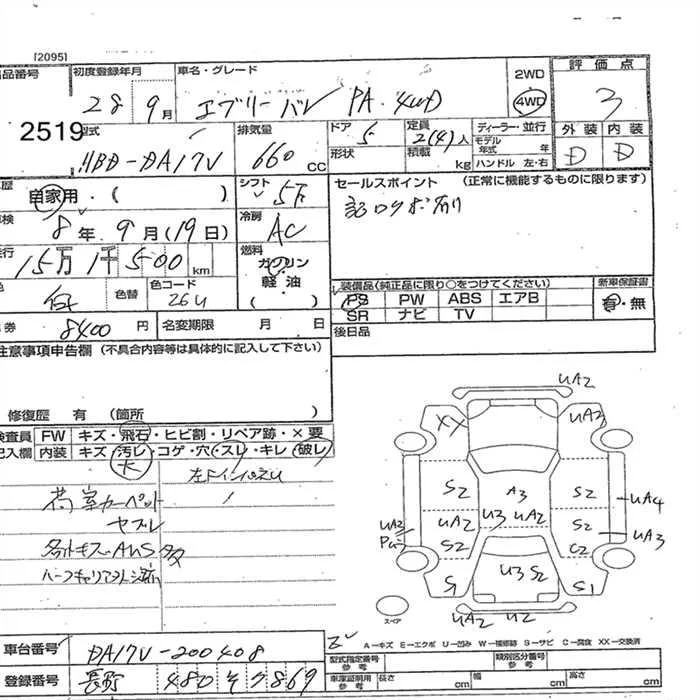 [2095]
品番号 初度登録年月 車名・グレード 2WD 評価点
28 9月 エブリーバン PA・4WD 4WD 3
2519
型式 排気量 ドア 定員 ディーラー・並行 外装 内装
HBD-DA17V 660 CC 5 2(4)人 モデル年式 年 D D
形状 積載 kg ハンドル 左・右
歴 自家用・( ) シフト 5F セールスポイント (正常に機能するものに限ります)
車検 8年 9月(19日) 冷房 AC 記ロクボ有リ
走行 15万1千500km 燃料 ガソリン・軽油
色 色替 色コード 26U 装備品(純正品に限り○をつけてください) 新車保証書
PS PW ABS エアB 有・無
SR ナビ TV
券 8400円 名変期限 月 日 後日品
注意事項申告欄 (不具合内容等は具体的に記入して下さい)
修復歴 有 (箇所 )
検査員 FW キズ・飛石・ヒビ割・リペア跡・×要
記入欄 内装 キズ・汚レ・コゲ・穴・スレ・キレ・破レ
大
荷室カーペット
ヤブレ
UA2
XX UA3
S2 A3 S2 UA4
UA2 U3 UA2 S2 UA3
S2 C2
S1 U3 S2 S1
UA2 U2
スペア
A－キズ E－エクボ U－凹み W－補修跡 S－サビ C－腐食 XX－交換済
車台番号 DA17V-200408 型式指定番号 参考 類別区分番号 参考
登録番号 480 そ 7869 車庫証明用 参考 長さ cm 幅 cm 高さ cm